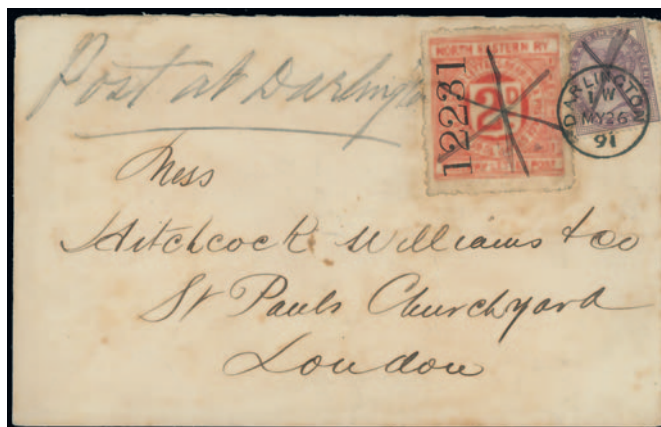 Post at Darlington
NORTH EASTERN RY.
12231
2D
POST
DARLINGTON
1 W
MY 26
91
Mess
Hitchcock Williams & Co
St Pauls Churchyard
London